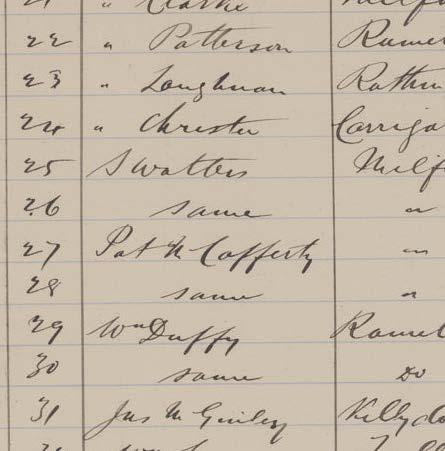 22 " Patterson Ramel
23 " Loughnan Rathm
24 " Christer Carriga
25 S Watters Milf
26 same "
27 Pat Mc Cafferty "
28 same "
29 Wm Duffy Ramel
30 same Do
31 Jas Mc Ginley Killydo